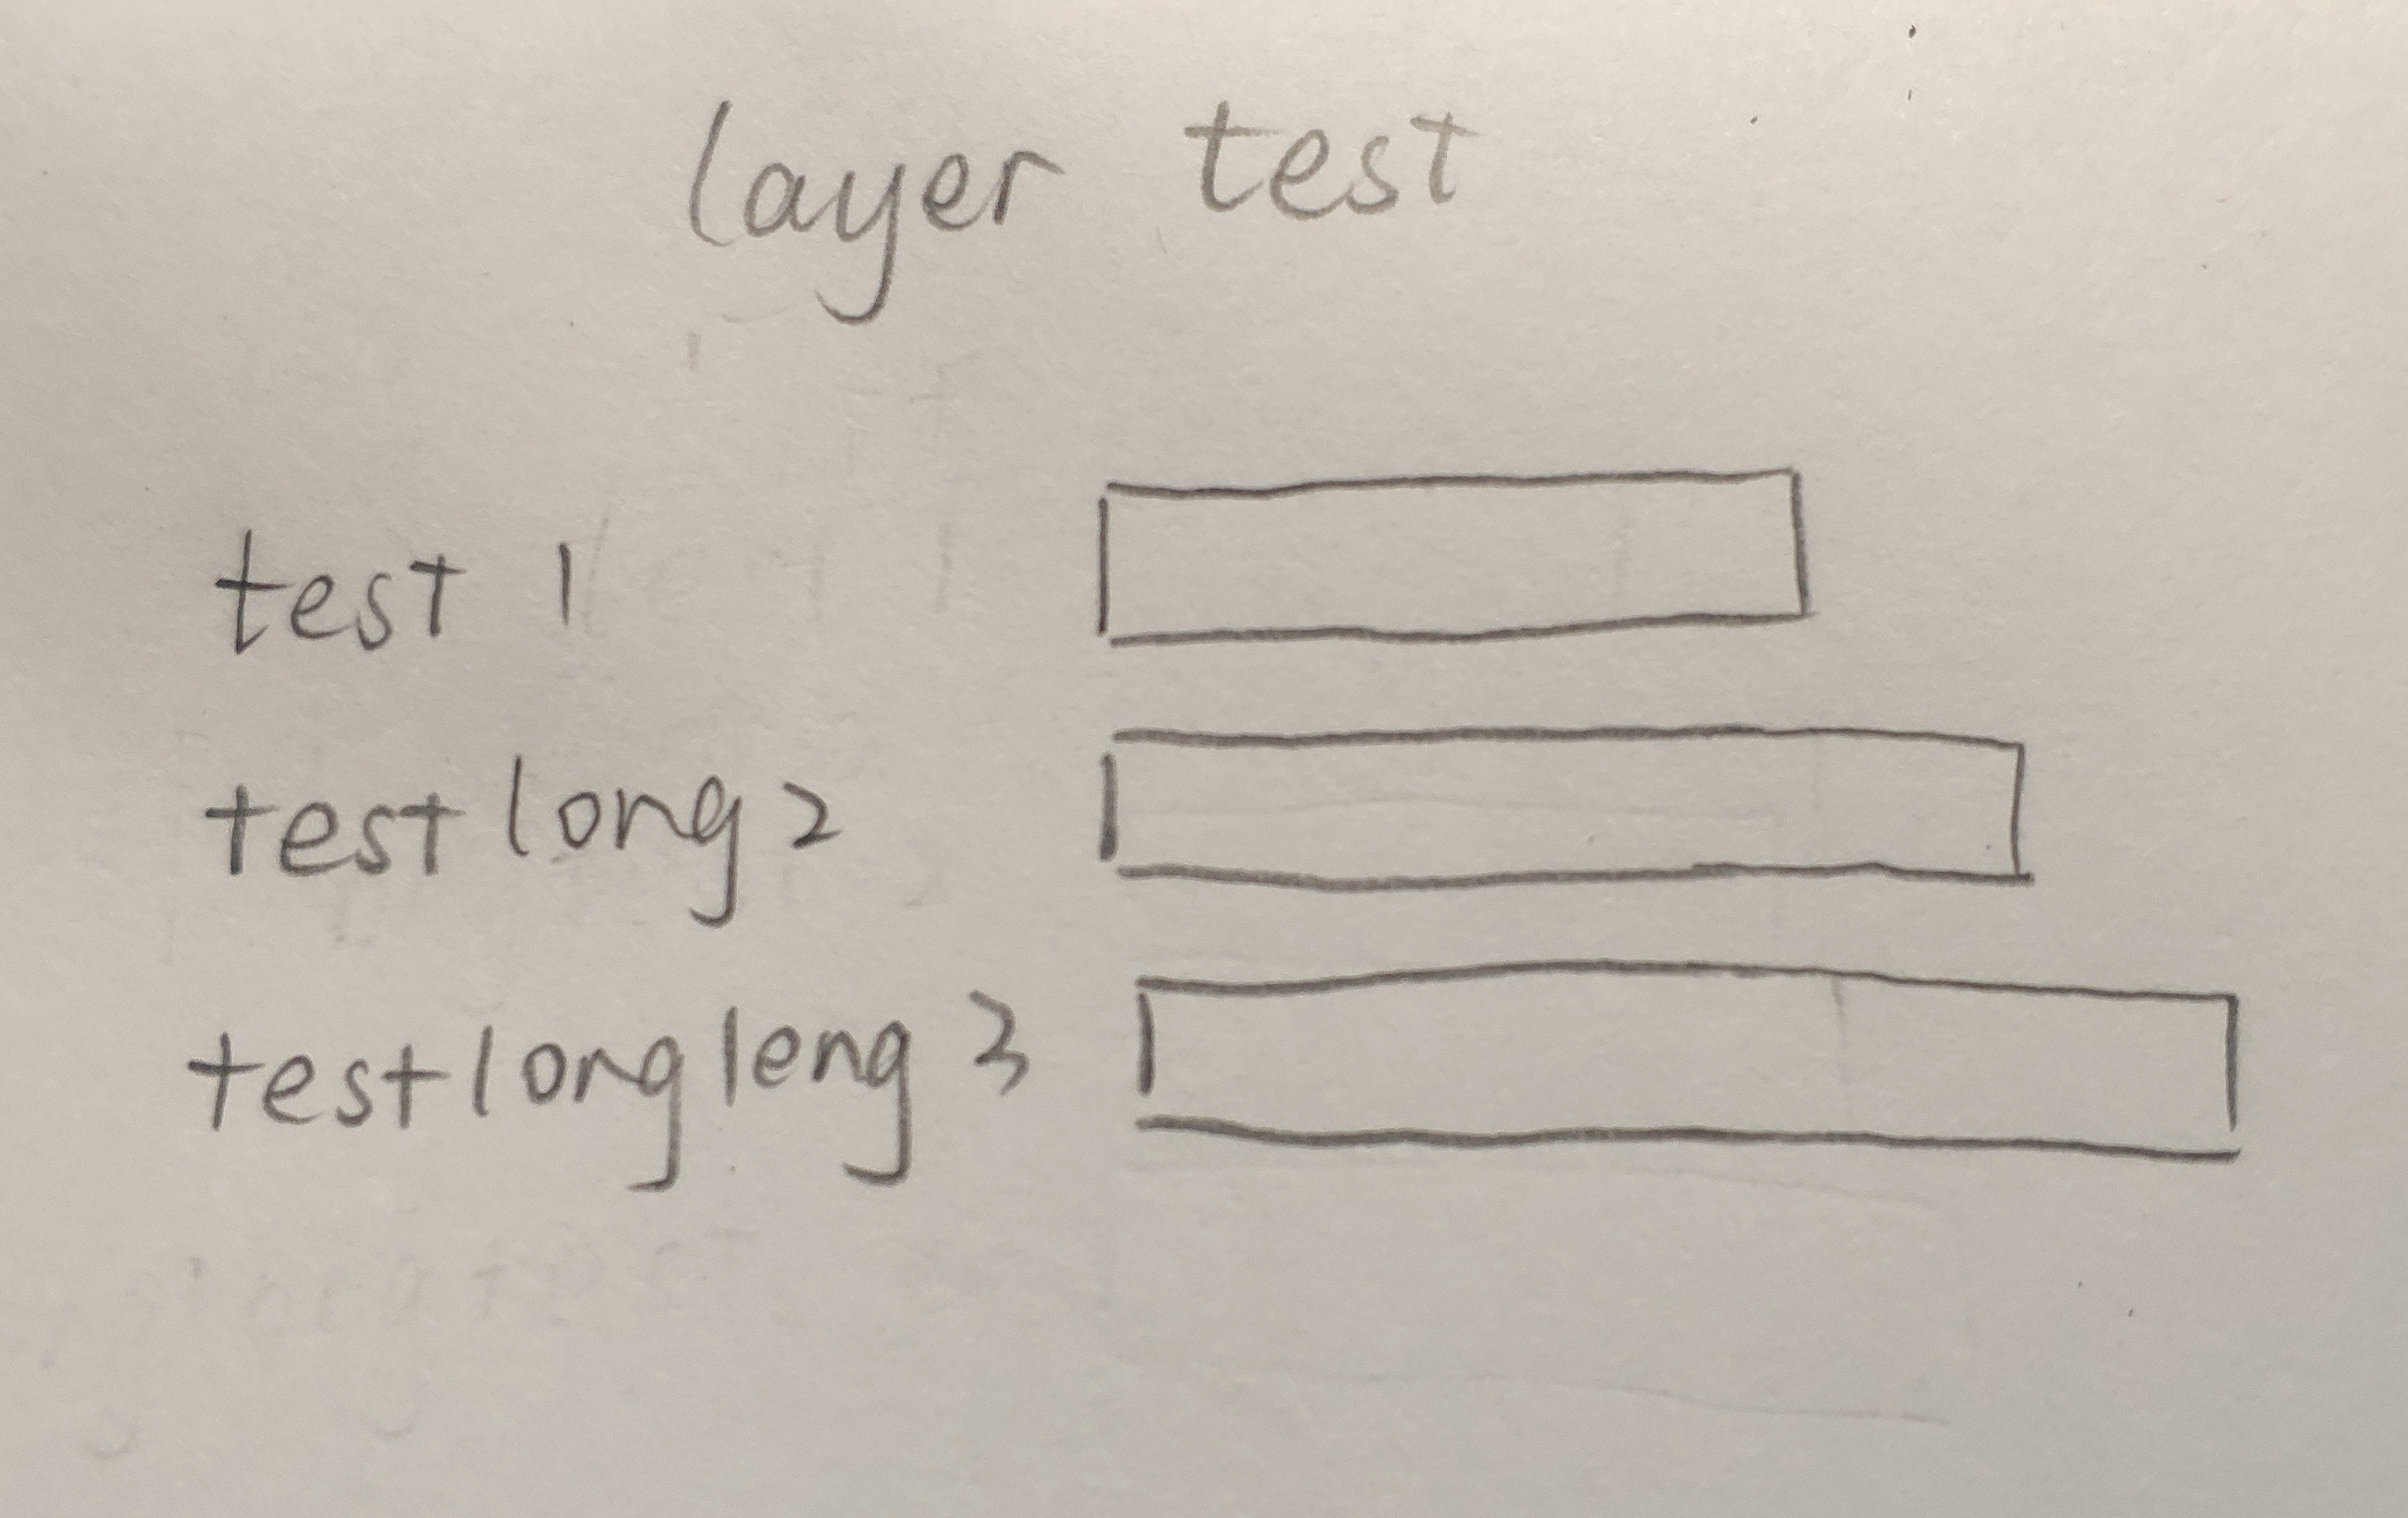 layer test
test 1
test long 2
test long leng 3